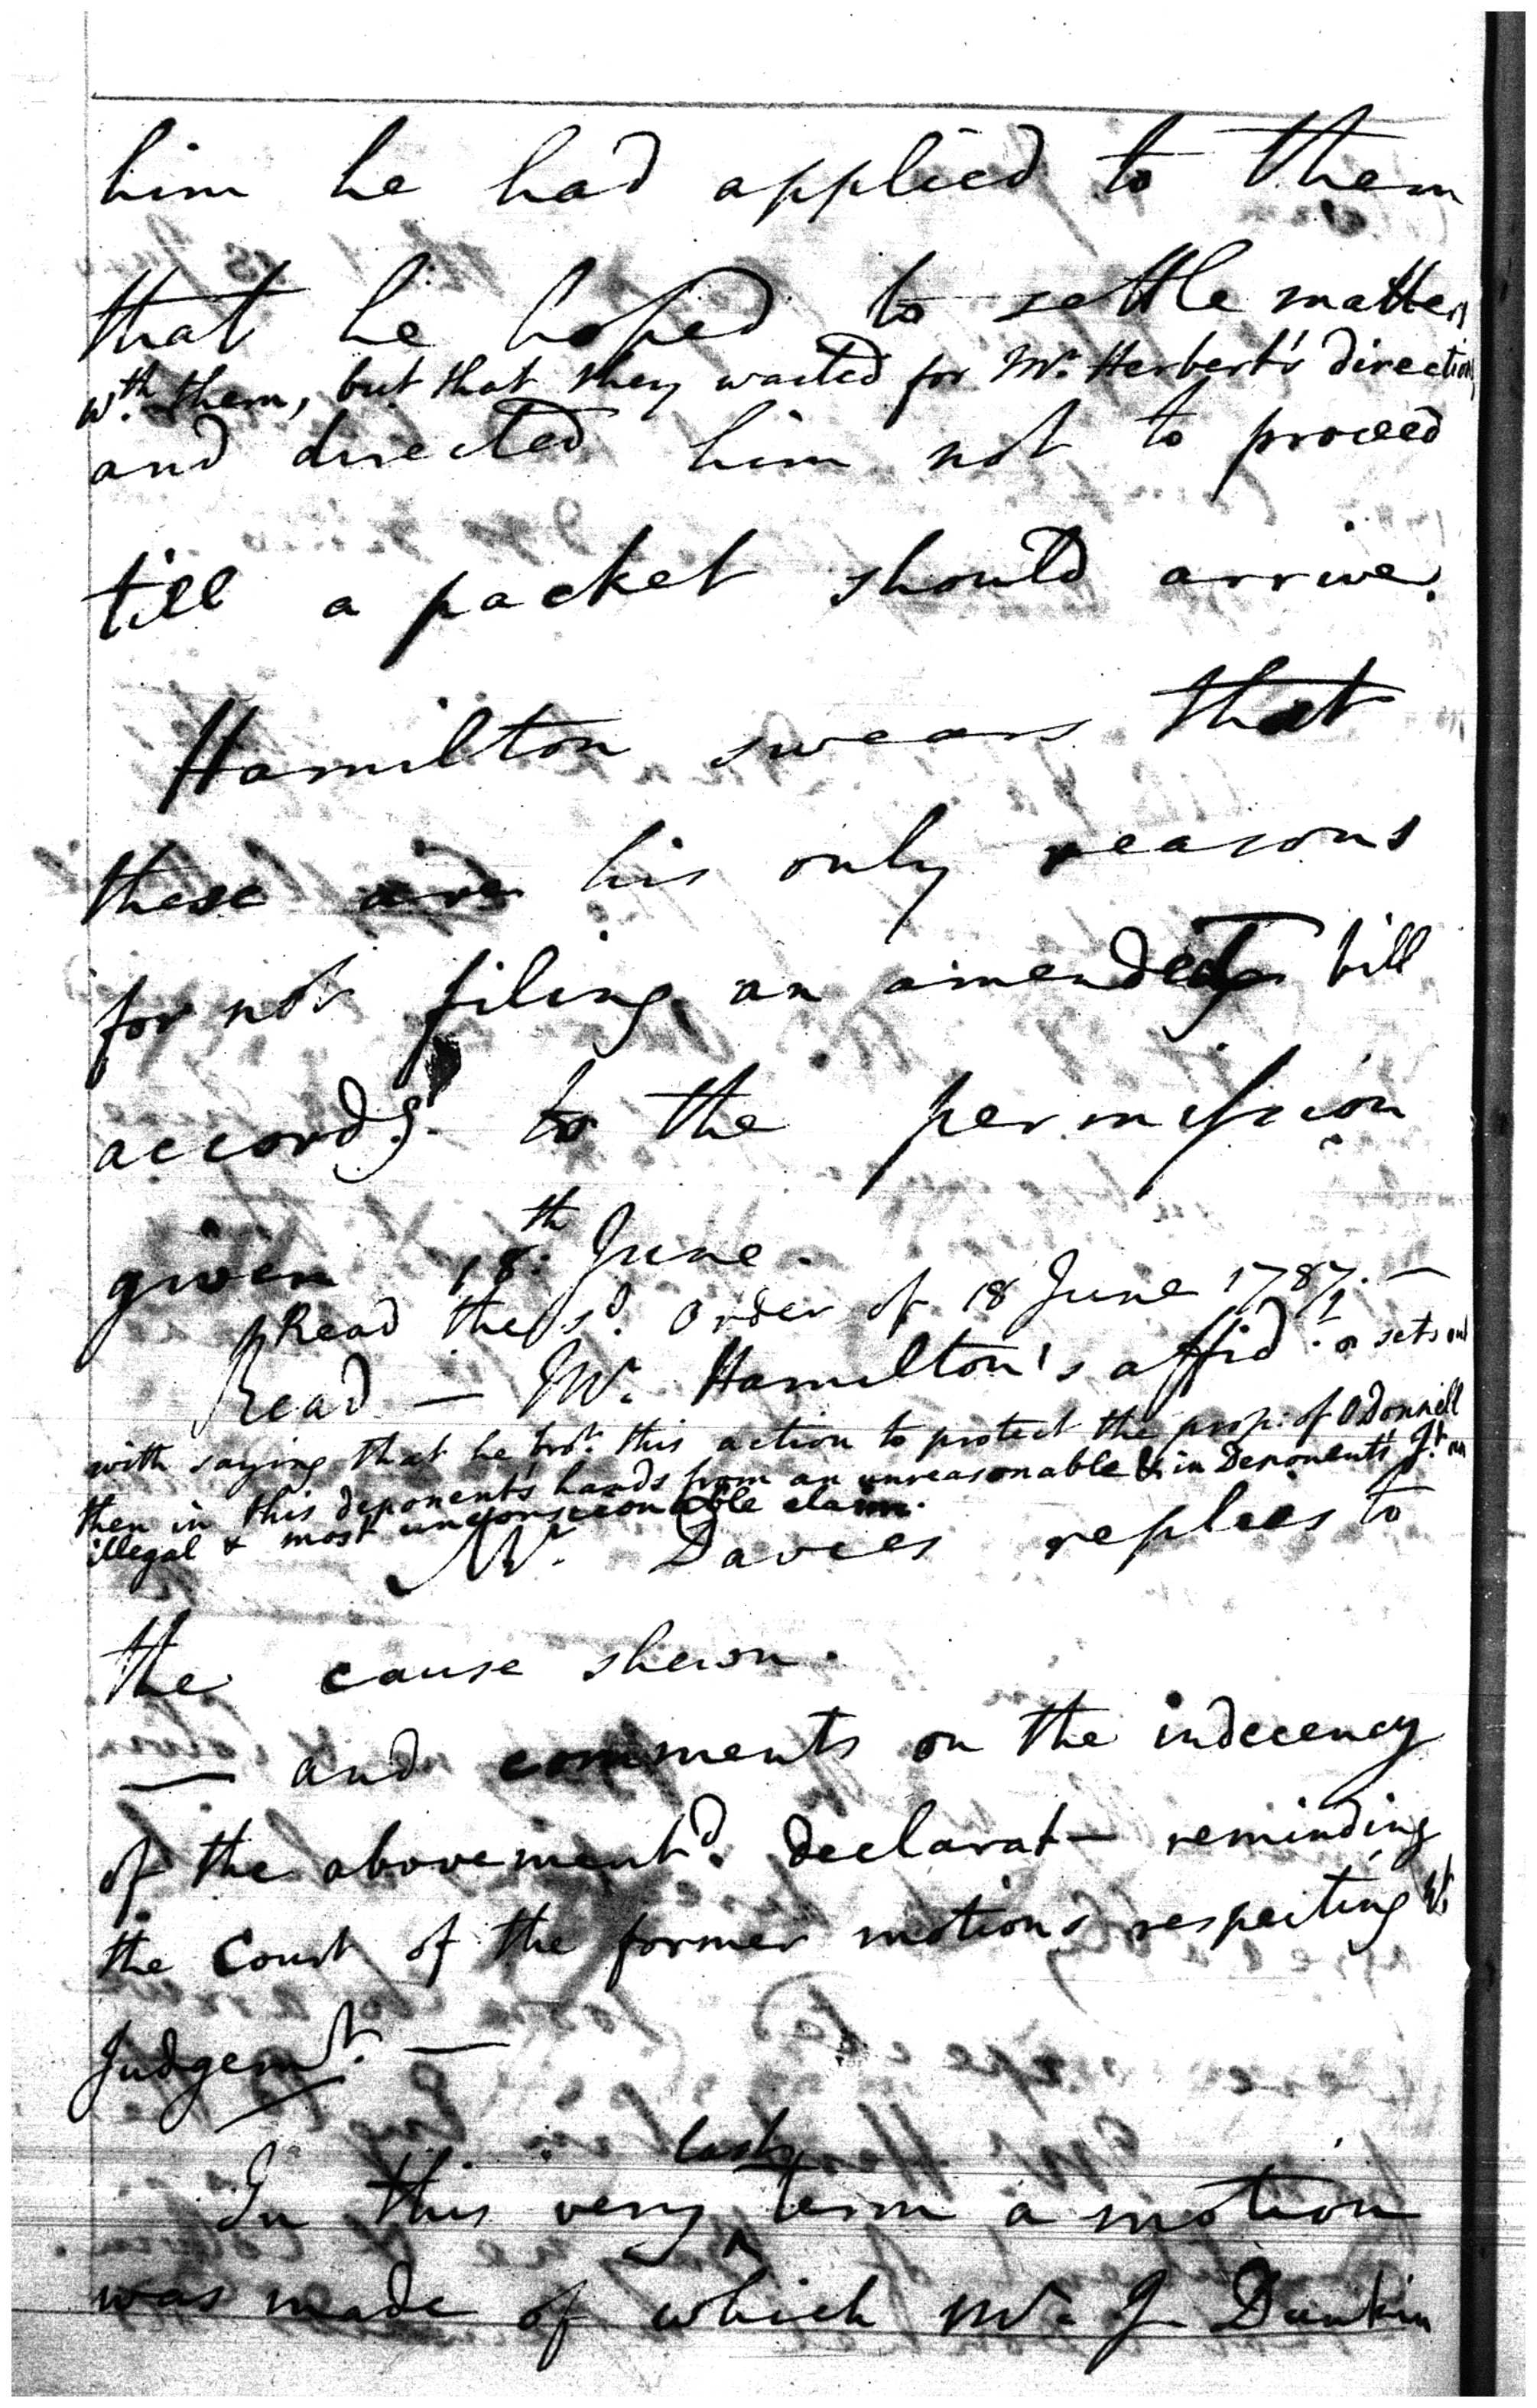 him he had applied to them
that he hoped to settle matters
wth. them, but that they waited for Mr. Herbert's directions,
and directed him not to proceed
till a packet should arrive.
Hamilton swears that
these are his only reasons
for not filing an amended bill
accordg. to the permission
given 18th. June.
Read the sd. Order of 18 June 1787. —
Read — Mr. Hamilton's affid. sets out
with saying that he brot. this action to protect the prop. of ODonnell
then in this deponent's hands from an unreasonable & in Deponent's Jt. an
illegal & most unconscionable claim.
Mr. Davies replies to
the cause shewn.
— and comments on the indecency
of the abovementd. declarat— reminding
the Court of the former motions respecting
Judgemt. —
last
In this very term a motion
was made of which Mr. J. Dunkin